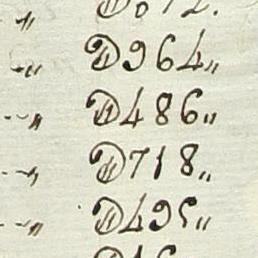 „ D 964„
„ D 486„
„ D 718„
„ D 495„